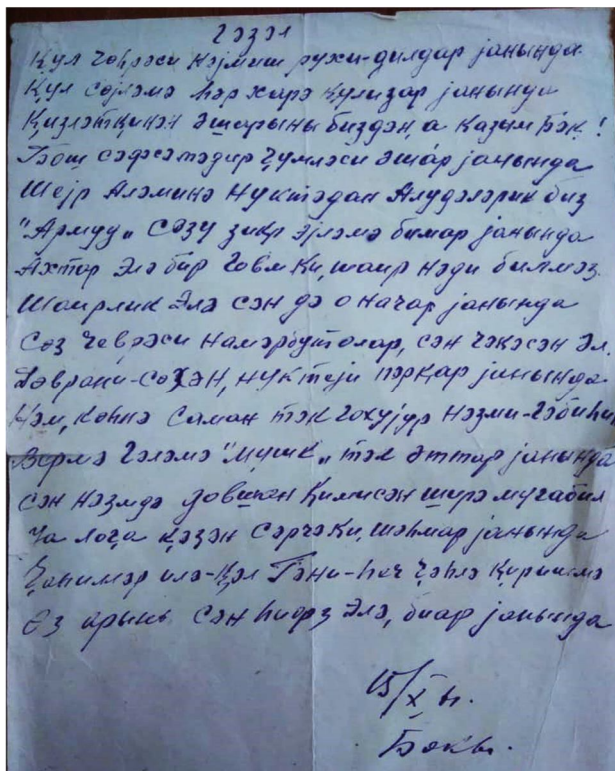 Гәзәл
Ҝул чөһрәси нәјмиш рухи-дилдар јанында
Ҝул сөјләмә һәр харә ҝулизар јанында
Ҝизләтҝинән әшарыны биздән, а Казым Бәҝ!
Бош сәфсәтәдир ҹумләси әшар јанында
Шејр Аләминә Нуктәдан Алудәләрик биз
"Армуд„ сөзу зикр әјләмә бимар јанында
Ахтар әлә бир говм ки, шаир нәди билмәз.
Шаирлик элә сән дә о начар јанында
Сөз чеврәси намәрбут олар, сән чәкәсән әл.
Дөврани-сөхән, нуктеји пәркар јанында
Нәм, көһнә саман тәк гохујур нәзми-гәбиһин
Вермә гәләмә "мушк„ тәк әттар јанында
Сән нәзмдә довшан кимисән ширә мугабил
Ҹа лоға ҝәзән сәрчә ки, шаһмар јанында
Ҹаһилләр илә-ҝәл Гәни-һеч ҹәһлә ҝиришмә
Өз арыны сән һифз элә, биар јанында
15/X ы.
Бакы.